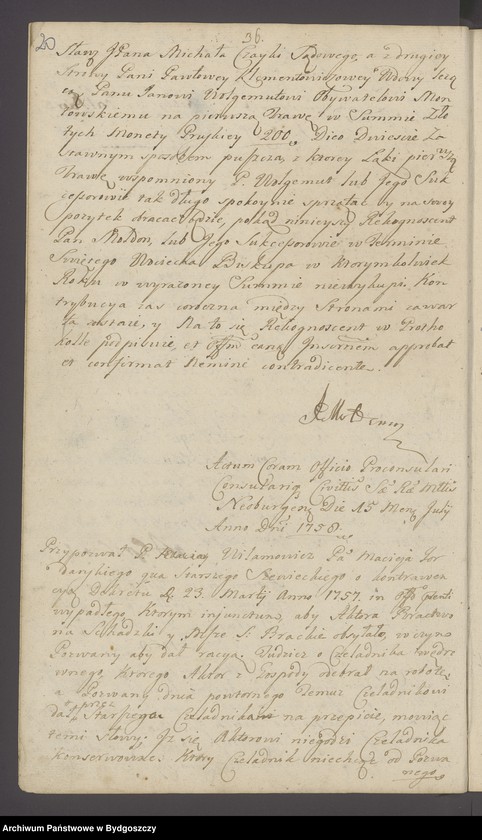 20
36.
Stany JPana Michała Czayki Sądowego, a z drugiey
Strony Pani Pawłowey Klementowiczowey Wdowy leżą
cą Panu Janowi Wolgemutowi Obywatelowi
na pierwszą Trawę w Summie Zło
tych Monety Pruskiey 200 Dico Dwieście Za
stawnym sposobem puszcza, z ktorey Łąki pierwszą
Trawę wspomniony P. Wolgemut lub Jego Suk
cessorowie tak długo spokoynie sprzątać y na swoy
pożytek obracać będzie, pokąd ninieyszy Rekognoscent
Pan Moldon, lub Jego Sukcessorowie w Terminie
Swiętego Woyciecha Biskupa w ktorymkolwiek
Roku w wyrażoney Summie niewykupi, Kon
trybucya zas coroczna między Stronami zawar
ta zostaie, y Na to się Rekognoscent w Protho
kolle podpisuie, et Offm eand Inscriptnem approbat
et confirmat Nemine contradicente.
Actum Coram Officio Proconsulari
Consulariq Civittis Sae Rae Mttis
Neoburgen Die 15 Mens July
Anno Dni 1758
Przypozwał P. Wilamowicz Pa Macieja Jor
danskiego qua Starszego Szewieckiego o kontrawen
cyą Dekretu D 23. Martij Anno 1757. in Offo
wypadłego, ktorym injunctum, aby Aktora Bractwo
na Schadzki y Msze S. Brackie obsyłało, w czym
Pozwany aby dał racyą. Tudzież o Czeladnika wędro
wnego, ktorego Aktor z Gospody odebrał na robotę,
a Pozwany dnia powtornego temuż Czeladnikowi
dał przez Starszego Czeladnika na przepicie, mowiąc
temi słowy: Iż się Aktorowi niegodzi Czeladnika
konserwować. Ktory Czeladnik niechcąc od Pozwa
nego
Archiwum Państwowe w Bydgoszczy